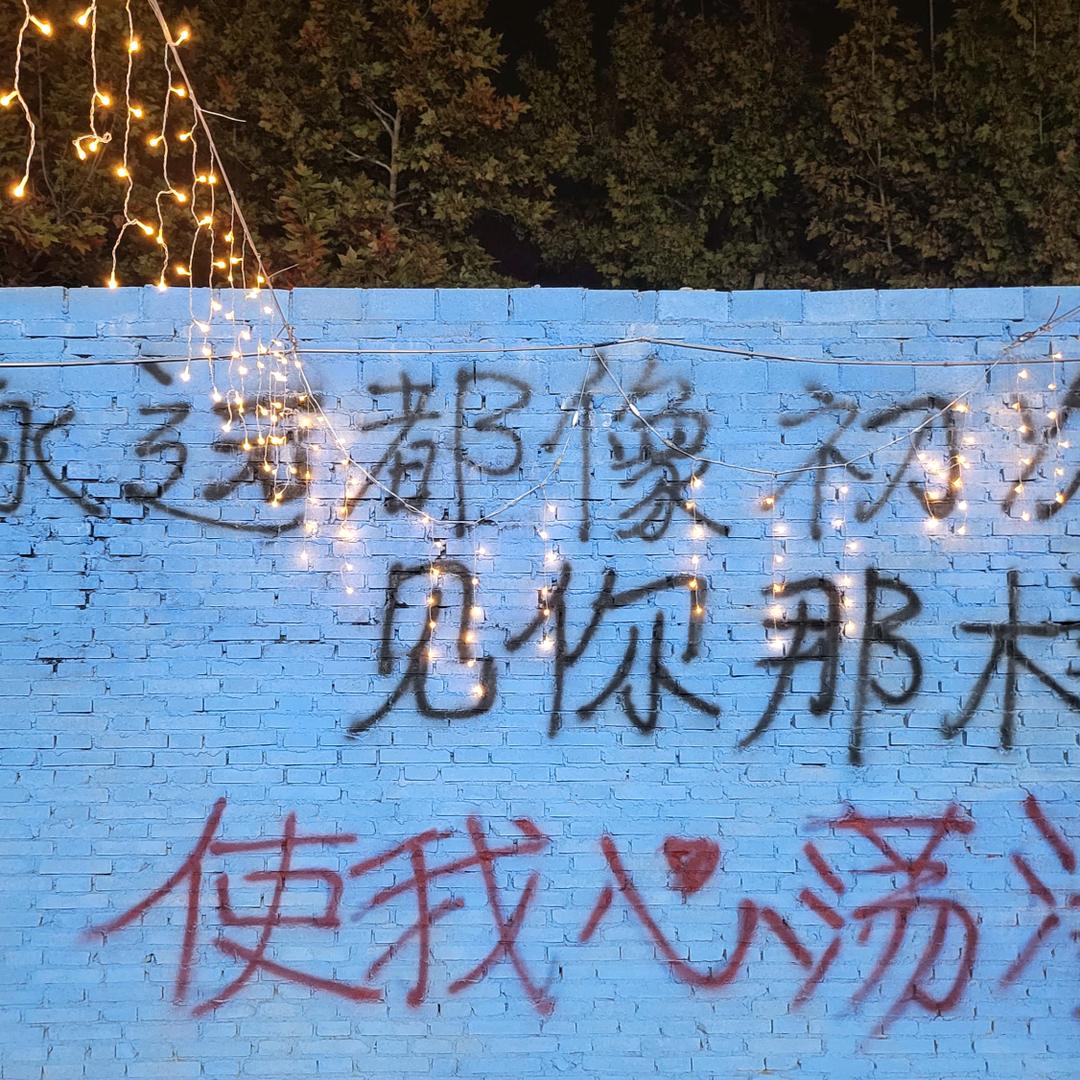 永远都像初
见你那
使我心荡